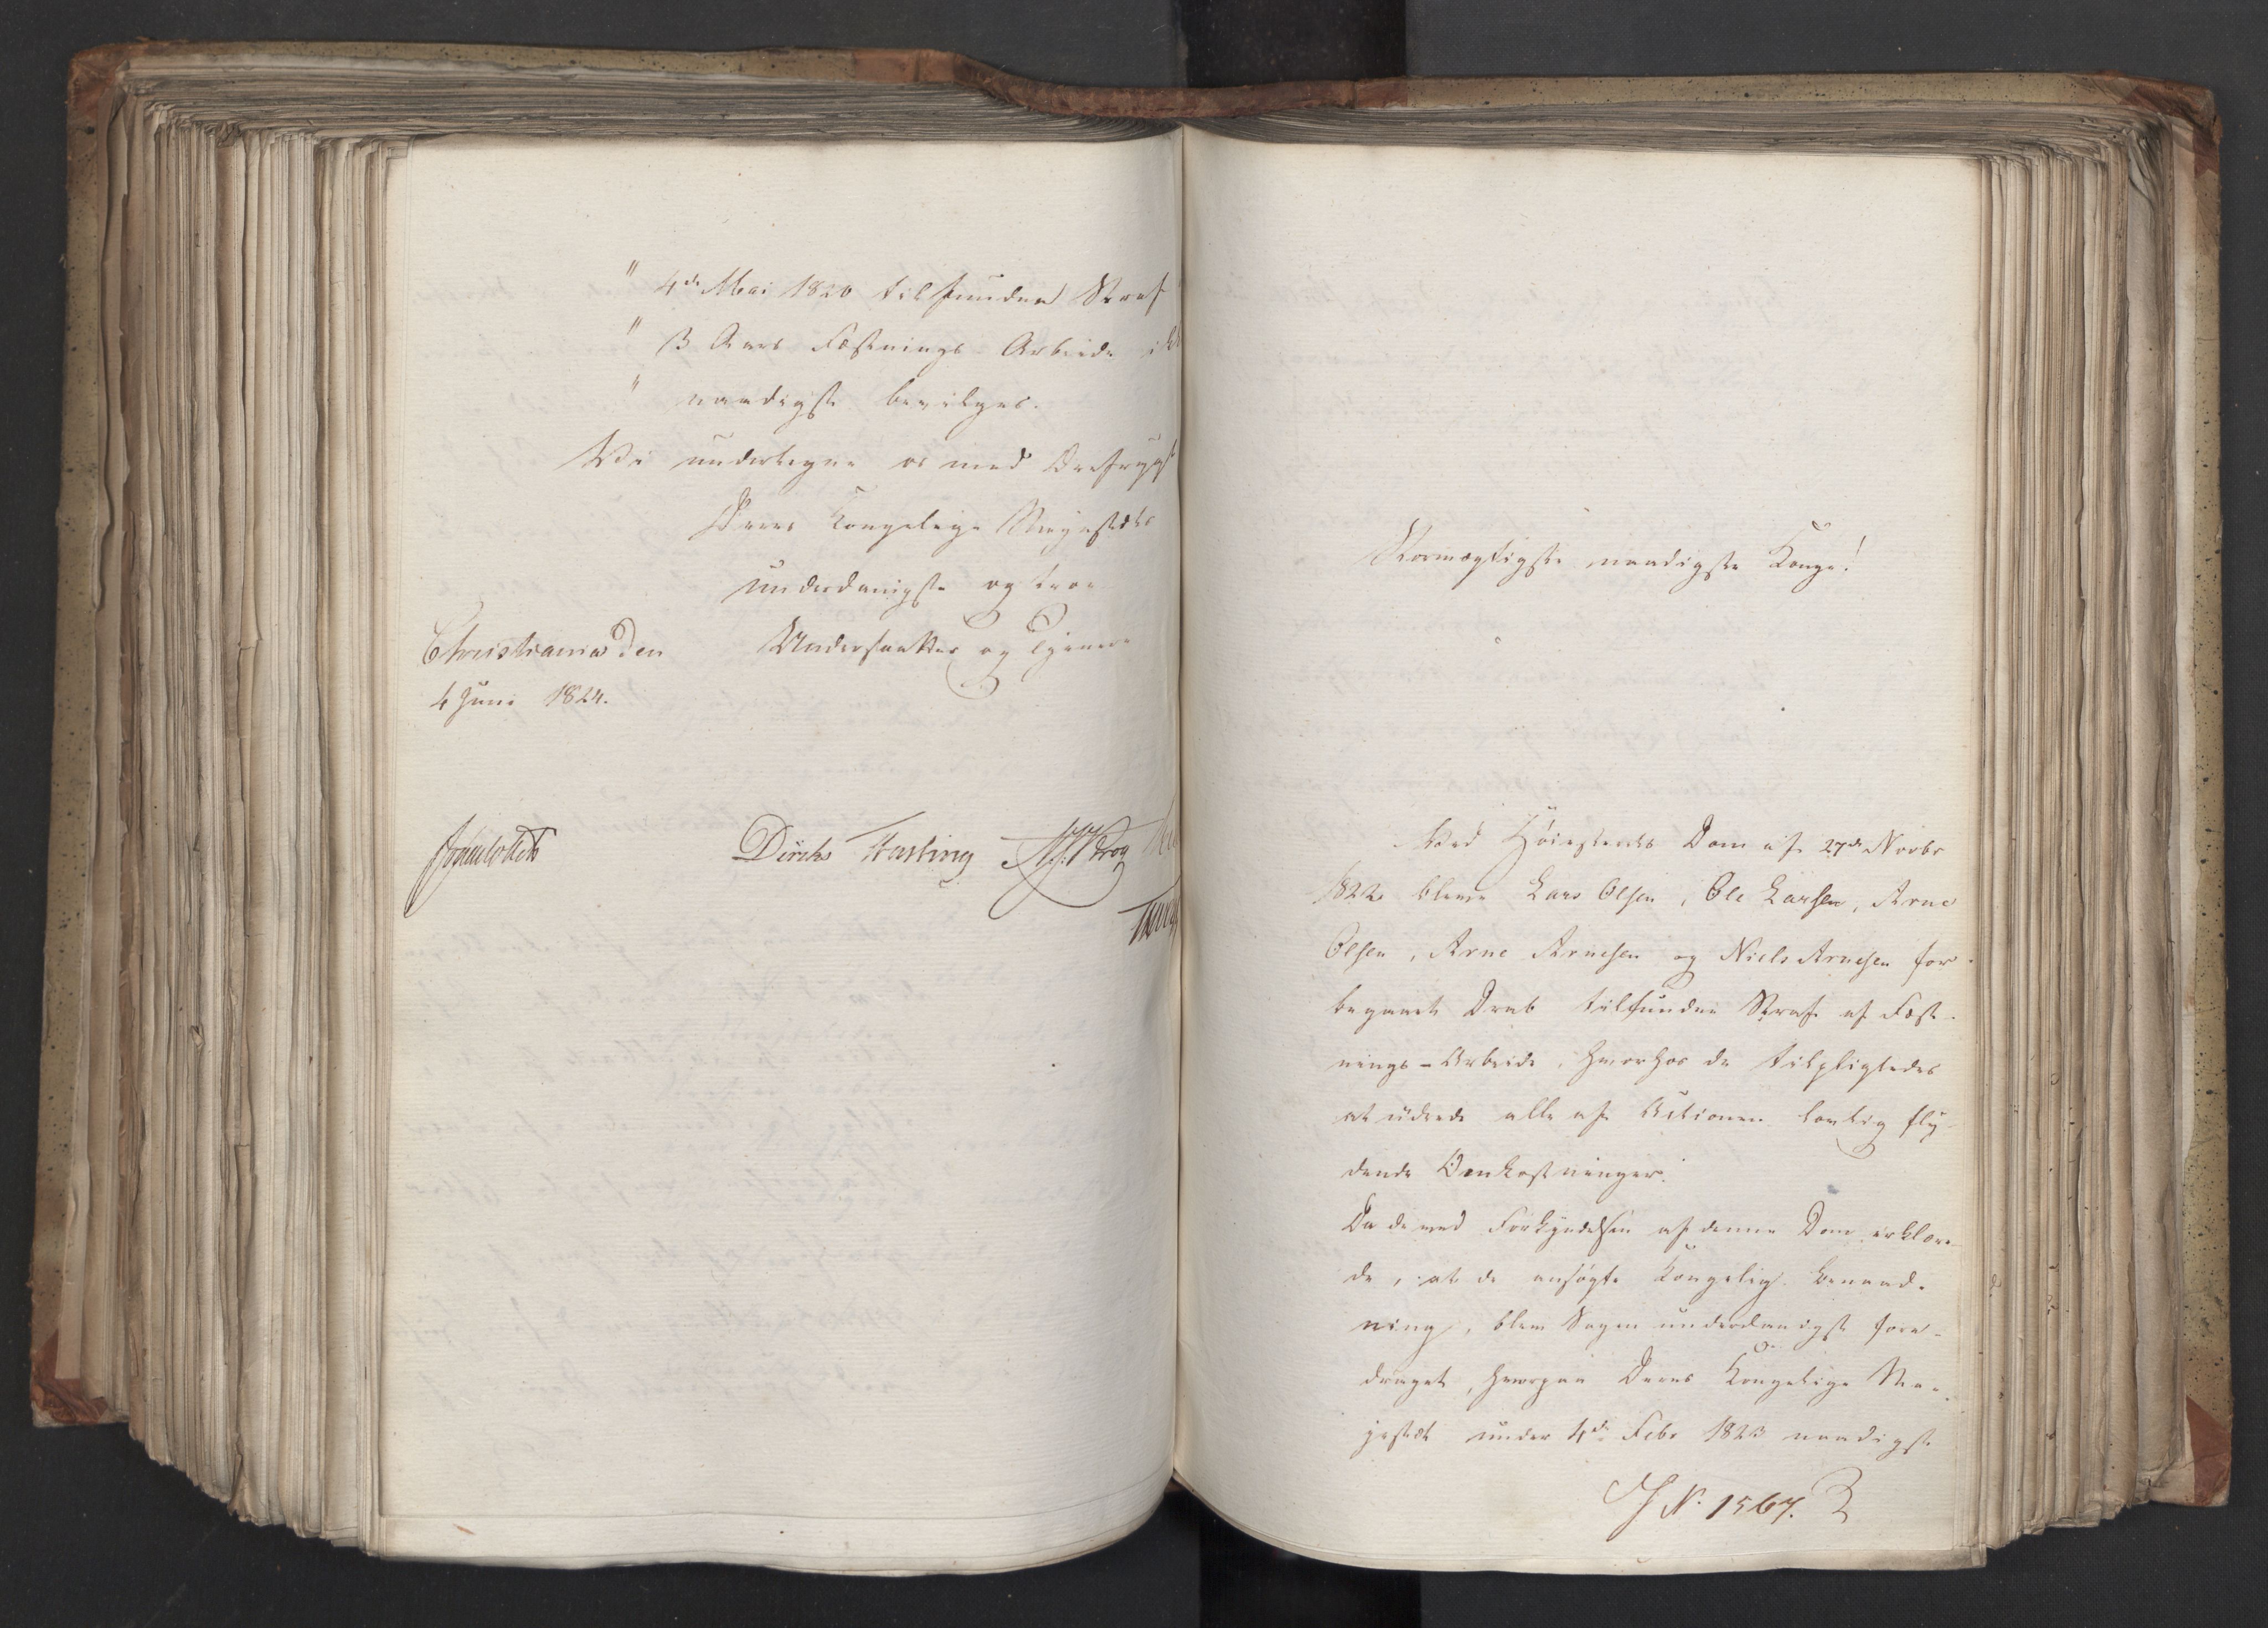 " 4de Mai 1820 tilfundne Straf
" 3 Aars Fæstnings-Arbeide ikke
" naadigst bevilges.
Vi undertegne os med Ærefrygt
Deres Kongelige Majestæts
underdanigste og troe
Christiania den Undersaatter og Tjenere
4 Juni 1824.
Diriks Hasting
Stormægtigste naadigste Konge!
Ved Høiesterets Dom af 27de Novbr
1822 bleve Lars Olsen, Ole Larsen, Arne
Olsen, Arne Arnesen og Niels Arnesen for
begaaet Drab tilfundne Straf af Fæst-
nings-Arbeide, hvorhos de tilpligtedes
at udrede alle af Actionen lovlig fly-
dende Omkostninger.
Da de ved Forkyndelsen af denne Dom erklære-
de, at de ansøgte Kongelig Benaad-
ning, blev Sagen underdanigst fore-
draget, hvorpaa Deres Kongelige Ma-
jestæt under 4de Febr 1823 naadigst
J N. 1567.